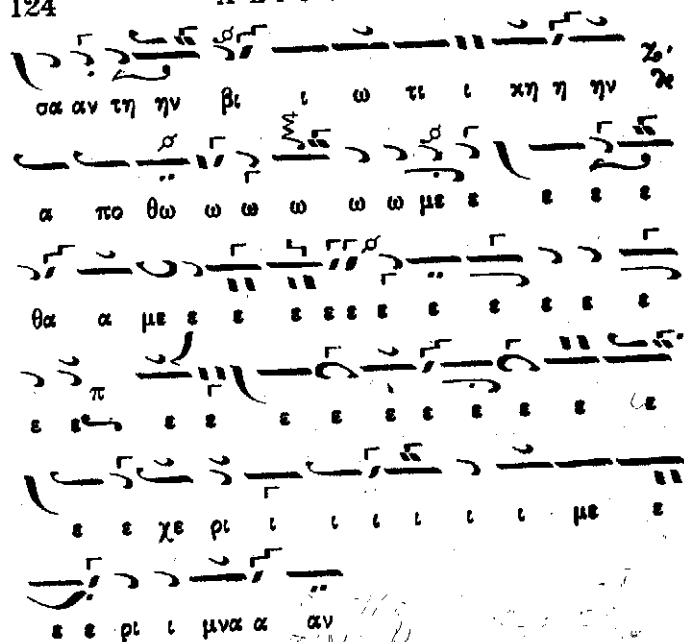 124
σα αν τη ην βι ι ω τι ι κη η ην
α πο θω ω ω ω ω ω με ε ε ε ε
θα α με ε ε ε ε ε ε ε ε ε ε ε ε
ε ε π ε ε ε ε ε ε ε ε ε ε
ε ε χε ρι ι ι ι ι ι ι με ε
ε ε ρι ι μνα α αν